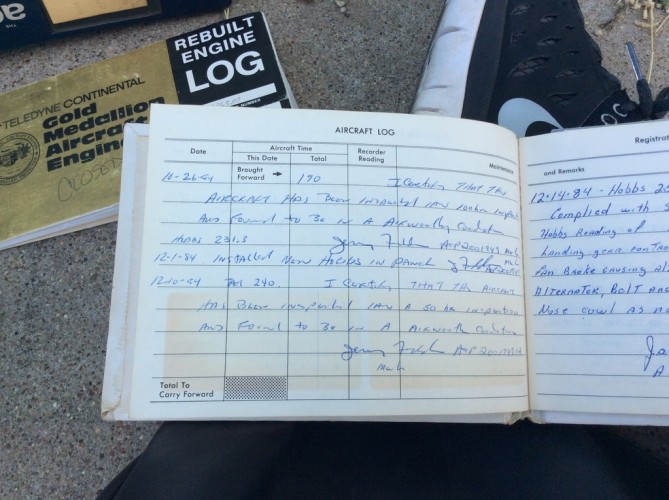 THE
REBUILT
ENGINE
LOG
NUMBER
TELEDYNE CONTINENTAL
Gold
Medallion
Aircraft
Engine
CLOSED
AIRCRAFT LOG
Date
Aircraft Time
This Date
Total
Recorder
Reading
Maintenance
Brought
Forward
10-26-84 190 I Certify THAT THE
AIRCRAFT HAS BEEN INSPECTED IAW
AND FOUND TO BE IN A AIRWORTHY Condition
HOBBS 231.3
12-1-84 INSTALLED NEW HOBBS IN PANEL
12-10-84 240. I CERTIFY THAT THE AIRCRAFT
HAS BEEN INSPECTED IAW A 50 hr INSPECTION
AND FOUND TO BE IN A AIRWORTH Condition
Mech
Total To
Carry Forward
Registrat
and Remarks
12-14-84 - Hobbs 25
Complied with S
Hobbs Reading of
Landing gear
Fan Broke causing
ALTERNATER, BOLT
Nose cowl AS